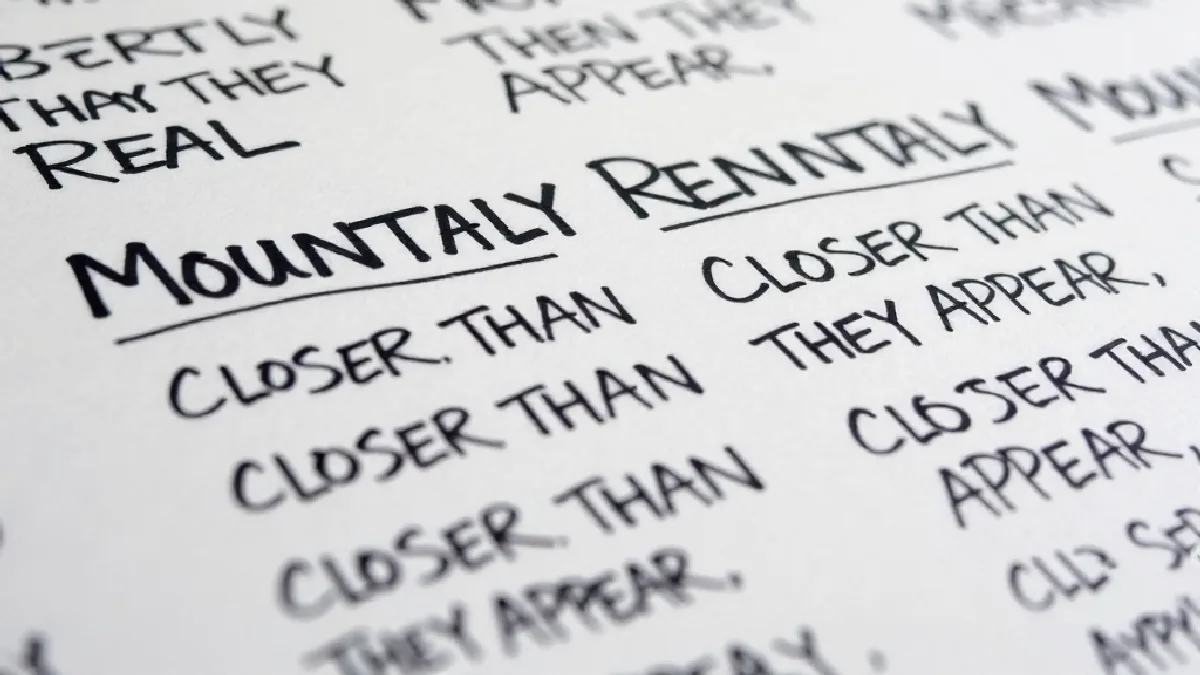 BERTLY
THAY THEY
REAL
THEN THEY
APPEAR.
MOUNTALY
CLOSER. THAN
CLOSER THAN
CLOSER. THAN
THEY APPEAR.
RENNTALY
CLOSER THAN
THEY APPEAR,
CLOSER THA
APPEAR,
MOUN